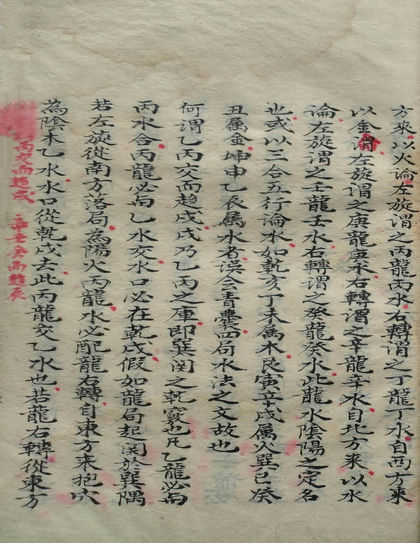 方來以火論左旋謂之丙龍丙水右轉謂之丁龍丁水自西方來
以金論左旋謂之庚龍庚水右轉謂之辛龍辛水自北方來以水
論左旋謂之壬龍壬水右轉謂之癸龍癸水此龍水陰陽之定名
也或以三合五行論水如乾亥丁未属木艮寅辛戌属火巽巳癸
丑属金坤申乙辰属水者误会青囊四局水法之文故也
何謂乙丙交而趨戌戌乃乙丙之庫即巽閃之乾竅也凡乙龍必向
丙水合丙龍必向乙水交水口必在乾戌假如龍局起閃於巽隅
若左旋從南方落局為陽火丙龍水必配龍右轉自東方來抱穴
為陰木乙水水口從乾戌去此丙龍交乙水也若龍右轉從東方
丙交而趨戌